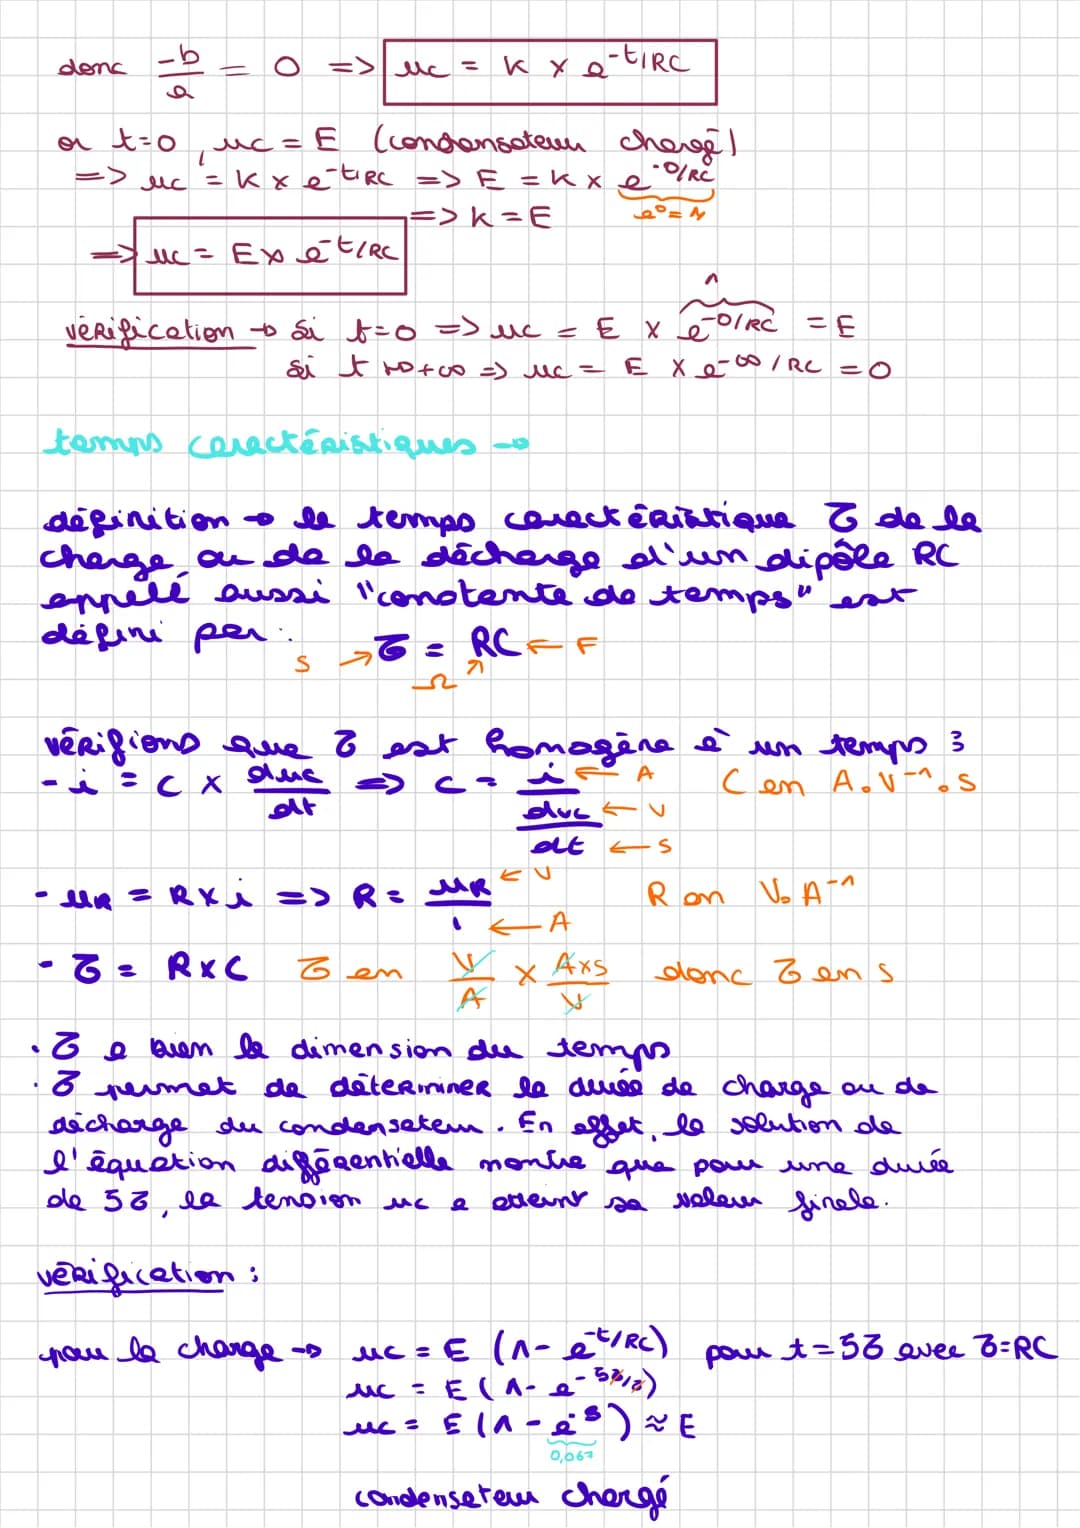 donc -b/a = 0 => uc = K × e^-t/RC
or t=0, uc = E (condensateur chargé)
=> uc = K × e^-t/RC => E = K × e^-0/RC
e^0 = 1
=> K = E
=> uc = E × e^-t/RC
1
vérification → Si t=0 => uc = E × e^-0/RC = E
Si t → +∞ => uc = E × e^-∞/RC = 0
temps caractéristiques →
définition → le temps caractéristique τ de la
charge ou de la décharge d'un dipôle RC
appellé aussi "constante de temps" est
défini par :
s → τ = RC ← F
Ω
vérifions que τ est homogène à un temps :
- i = C × duc/dt => C = i/(duc/dt) ← A ← V ← s C en A.V^-1.s
- uR = R × i => R = uR/i ← V ← A R en V.A^-1
- τ = R×C τ en V/A × A×s/V donc τ en s
• τ a bien la dimension du temps
• τ permet de déterminer la durée de charge ou de
décharge du condensateur. En effet, la solution de
l'équation différentielle montre que pour une durée
de 5τ, la tension uc a atteint sa valeur finale.
vérification :
pour la charge → uc = E (1 - e^-t/RC) pour t = 5τ avec τ=RC
uc = E (1 - e^-5τ/τ)
uc = E (1 - e^-5) ≈ E
0,067
condensateur chargé